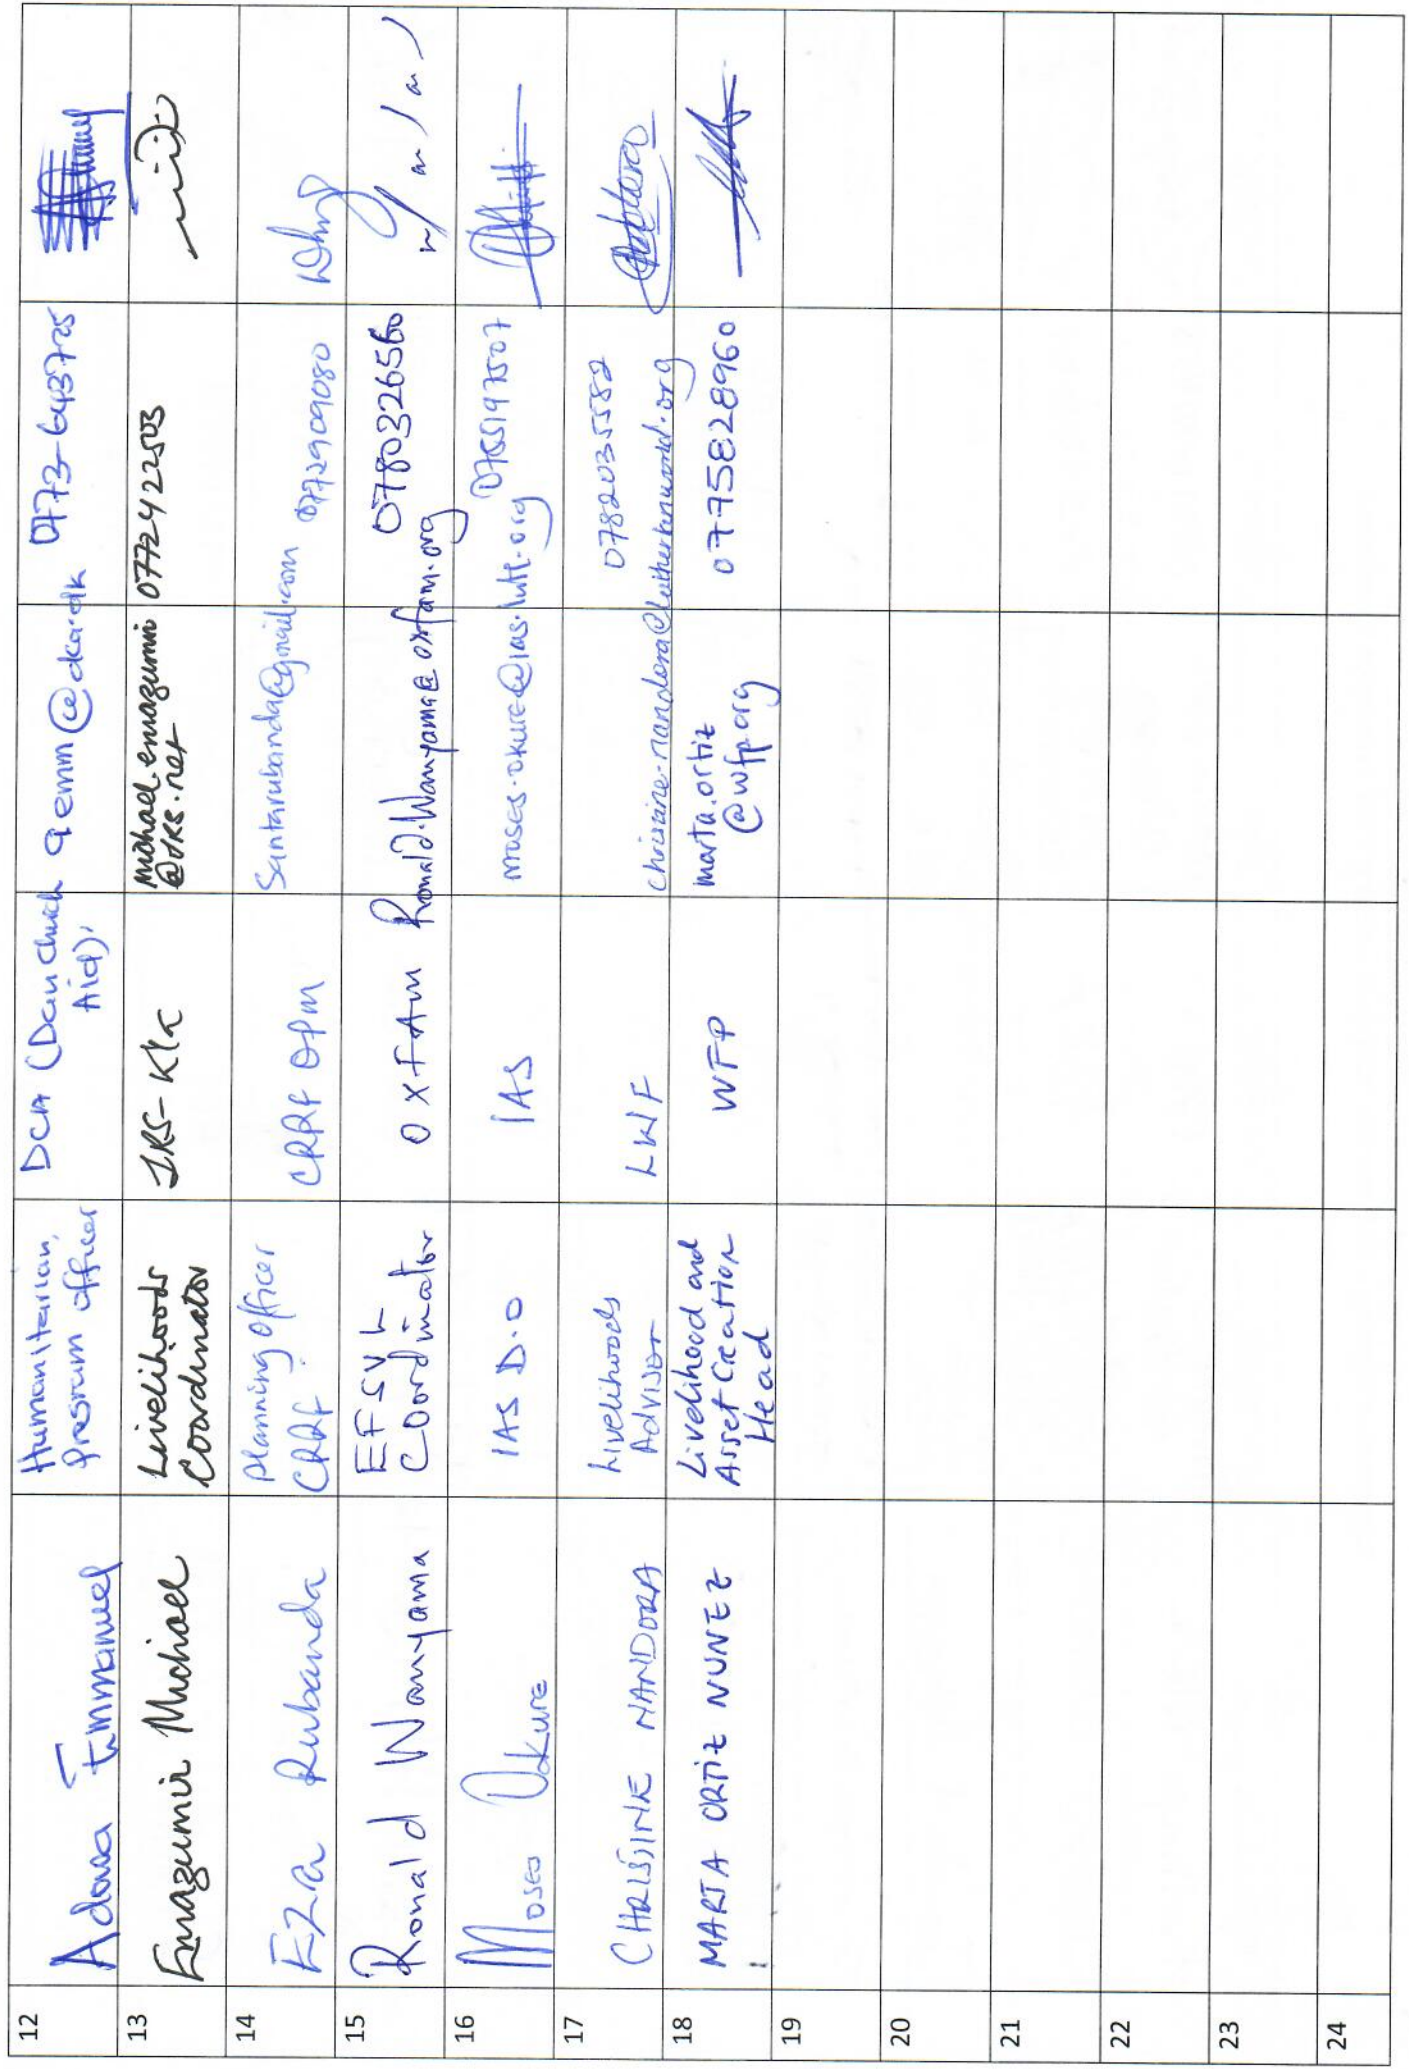 12
Adowa Emmanuel
Humanitarian,
program officer
DCA (DanChurch
Aid).
qemm@dca.dk
0773-643725
13
Emazumin Michael
Livelihoods
Coordinator
JRS-Kla
michael.emazumin
@JRS.net
0772422503
14
Eza Rubanda
Planning Officer
CRRF
CRRF OPM
Santarubanda@gmail.com
0772909080
15
Ronald Wanyama
EFSVL
Coordinator
OXFAM
Ronald.Wanyama@oxfam.org
0780326560
16
Moses Okure
IAS D.O
IAS
moses.okure@ias-intl.org
17
CHRISSINE NANDORA
Livelihoods
Advisor
LWF
0782035582
18
MARTA ORTIZ NUNEZ
Livelihood and
Asset Creation
Head
WFP
marta.ortiz
@wfp.org
0775828960
19
20
21
22
23
24